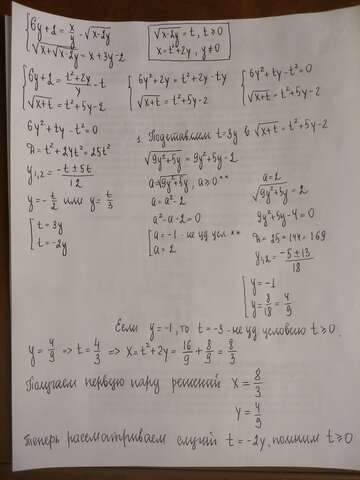 { 6y+2 = x/y - √(x-2y)
{ √(x+√(x-2y)) = x+3y-2
√(x-2y) = t, t≥0
x = t²+2y, y≠0
{ 6y+2 = (t²+2y)/y - t
{ √(x+t) = t²+5y-2
{ 6y²+2y = t²+2y-ty
{ √(x+t) = t²+5y-2
{ 6y²+ty-t²=0
{ √(x+t) = t²+5y-2
6y²+ty-t²=0
Д = t²+24t² = 25t²
y₁,₂ = (-t±5t)/12
y = -t/2 или y = t/3
[ t=3y
[ t=-2y
1. Подставляем t=3y в √(x+t) = t²+5y-2
√(9y²+5y) = 9y²+5y-2
a=√(9y²+5y), a≥0**
a = a²-2
a²-a-2=0
[ a=-1 - не уд. усл **
[ a=2
a=2
√(9y²+5y) = 2
9y²+5y-4=0
Д = 25+144=169
y₁,₂ = (-5±13)/18
[ y=-1
[ y = 8/18 = 4/9
Если y=-1, то t=-3 - не уд условию t≥0.
y = 4/9 => t = 4/3 => x = t²+2y = 16/9 + 8/9 = 8/3
Получаем первую пару решений x = 8/3
y = 4/9
Теперь рассматриваем случай t=-2y, помним t≥0